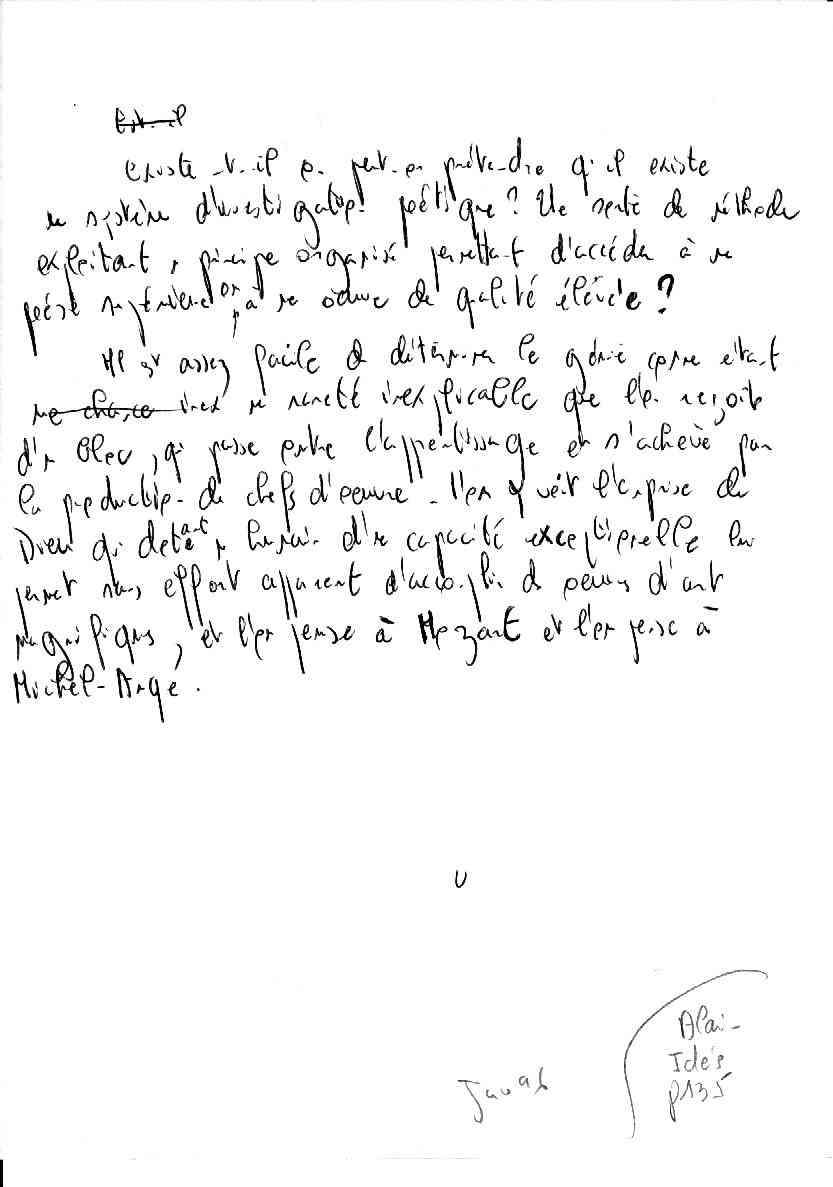 Est-il
Existe-t-il ou peut-on prétendre qu'il existe
un système d'investigation poétique ? Une sorte de méthode
exploitant un principe organisé permettant d'accéder à une
poésie supérieure ou à une œuvre de qualité élevée ?
Il est assez facile de déterminer le génie comme étant
une chose inex une rareté inexplicable que l'on reçoit
d'un bloc, qui passe outre l'apprentissage et s'achève par
la production de chefs d'œuvre. l'on y voit l'emprise de
Dieu qui dotant un humain d'une capacité exceptionnelle lui
permet sans effort apparent d'accomplir des œuvres d'art
magnifiques, et l'on pense à Mozart et l'on pense à
Michel-Ange.
Alain
Idées
p135